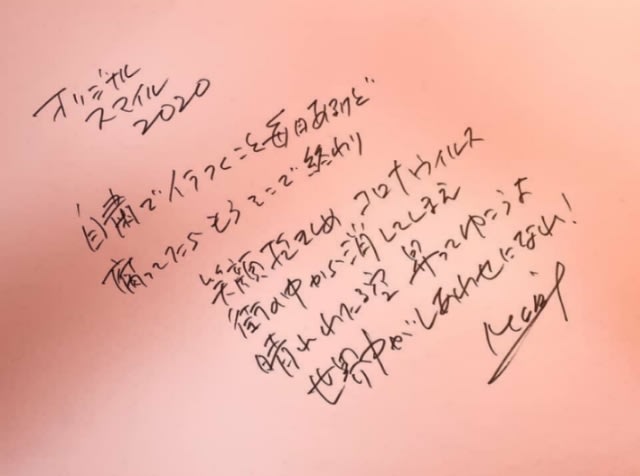 オリジナル
スマイル
2020
自粛でイラつくこと毎日あるけど
腐ってたらもうそこで終わり
笑顔抱きしめ コロナウィルス
街の中から消してしまえ
晴れわたる空 昇ってゆこうよ
世界中がしあわせになれ!